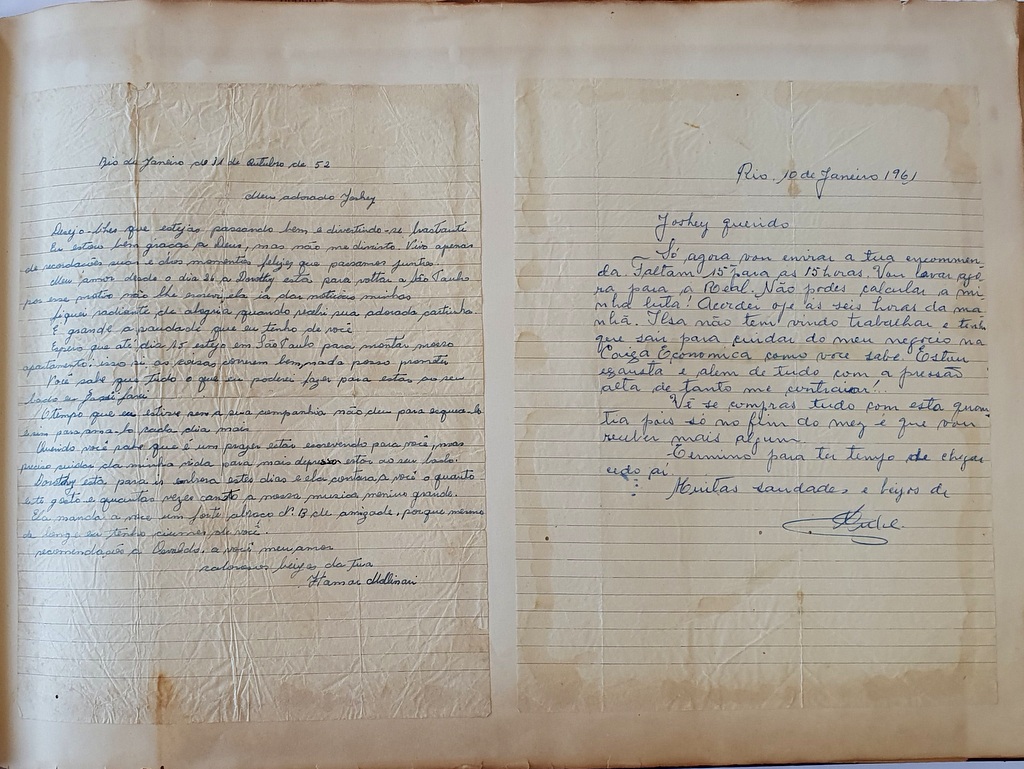 Rio de Janeiro de 31 de Outubro de 52
Meu adorado Joshey
Desejo-lhes que estejas passando bem e divertindo-se bastante
Eu estou bem graças a Deus, mas não me divirto. Vivo apenas
de recordações suas e dos momentos felizes que passamos juntos.
Meu amor desde o dia 26 a Dorothy está para voltar a São Paulo
por esse motivo não lhe escrevi, ela ia dar noticias minhas
Fiquei radiente de alegria quando recebi sua adorada cartinha.
E grande a saudade que eu tenho de você
Espero que até dia 15 esteja em São Paulo para montar nosso
apartamento: isso si as coisas correrem bem, nada posso prometer
Você sabe que tudo o que eu poderei fazer para estar ao seu
lado eu farei
O tempo que eu estive sem a sua companhia não deu para esquece-lo
e sim para ama-lo cada dia mais
Querido você sabe que é um prazer estar escrevendo para você, mas
preciso cuidar da minha vida para mais depressa estar ao seu lado.
Dorothy está para ir embora estes dias e ela contara a você o quanto
este gosto e quantas vezes canto a nossa musica menino grande.
Ela manda a voce um forte abraço d. B de amizade, porque mesmo
de longe eu tenho ciumes de você.
recomendações a Osvaldo, a você meu amor
calorosos beijos da tua
Itamar Mollinari
Rio, 10 de Janeiro 1961
Joshey querido
Só agora vou enviar a tua encommen
da. Faltam 15 para as 15 horas. Vou levar agó-
ra para a Real. Não podes calcular a mi
nha luta! Acordei oje as seis horas da ma
nhã. Ilsa não tem vindo trabalhar e tenho
que sair para cuidar do meu negocio na
Caixa Economica como você sabe. Estou
exausta e alem de tudo com a pressão
alta de tanto me contrariar!..
Vê se compras tudo com esta quan
tia pois só no fim do mez é que vou
receber mais algum.
Termino para ter tempo de chegar
cedo aí.
Muitas saudades e beijos de